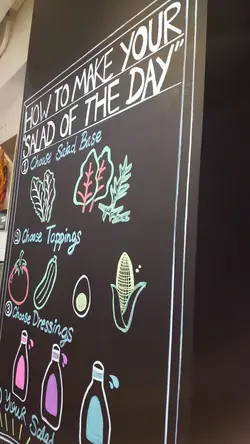 HOW TO MAKE YOUR
"SALAD OF THE DAY"
① Choose Salad Base
② Choose Toppings
③ Choose Dressings
Your Salad